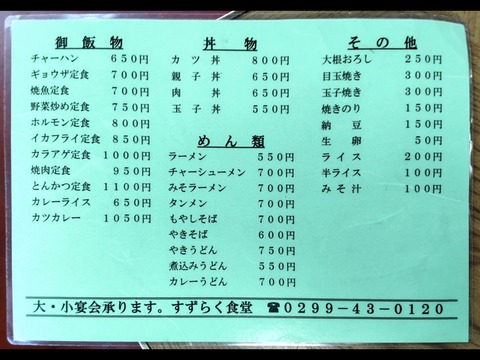 御飯物
チャーハン 650円
ギョウザ定食 700円
焼魚定食 700円
野菜炒め定食 750円
ホルモン定食 800円
イカフライ定食 850円
カラアゲ定食 1000円
焼肉定食 950円
とんかつ定食 1100円
カレーライス 650円
カツカレー 1050円
丼物
カツ丼 800円
親子丼 650円
肉丼 650円
玉子丼 550円
めん類
ラーメン 550円
チャーシューメン 700円
みそラーメン 700円
タンメン 700円
もやしそば 700円
やきそば 600円
やきうどん 750円
煮込みうどん 550円
カレーうどん 700円
その他
大根おろし 250円
目玉焼き 300円
玉子焼き 300円
焼きのり 150円
納豆 150円
生卵 50円
ライス 200円
半ライス 100円
みそ汁 100円
大・小宴会承ります。すずらく食堂 ☎0299-43-0120